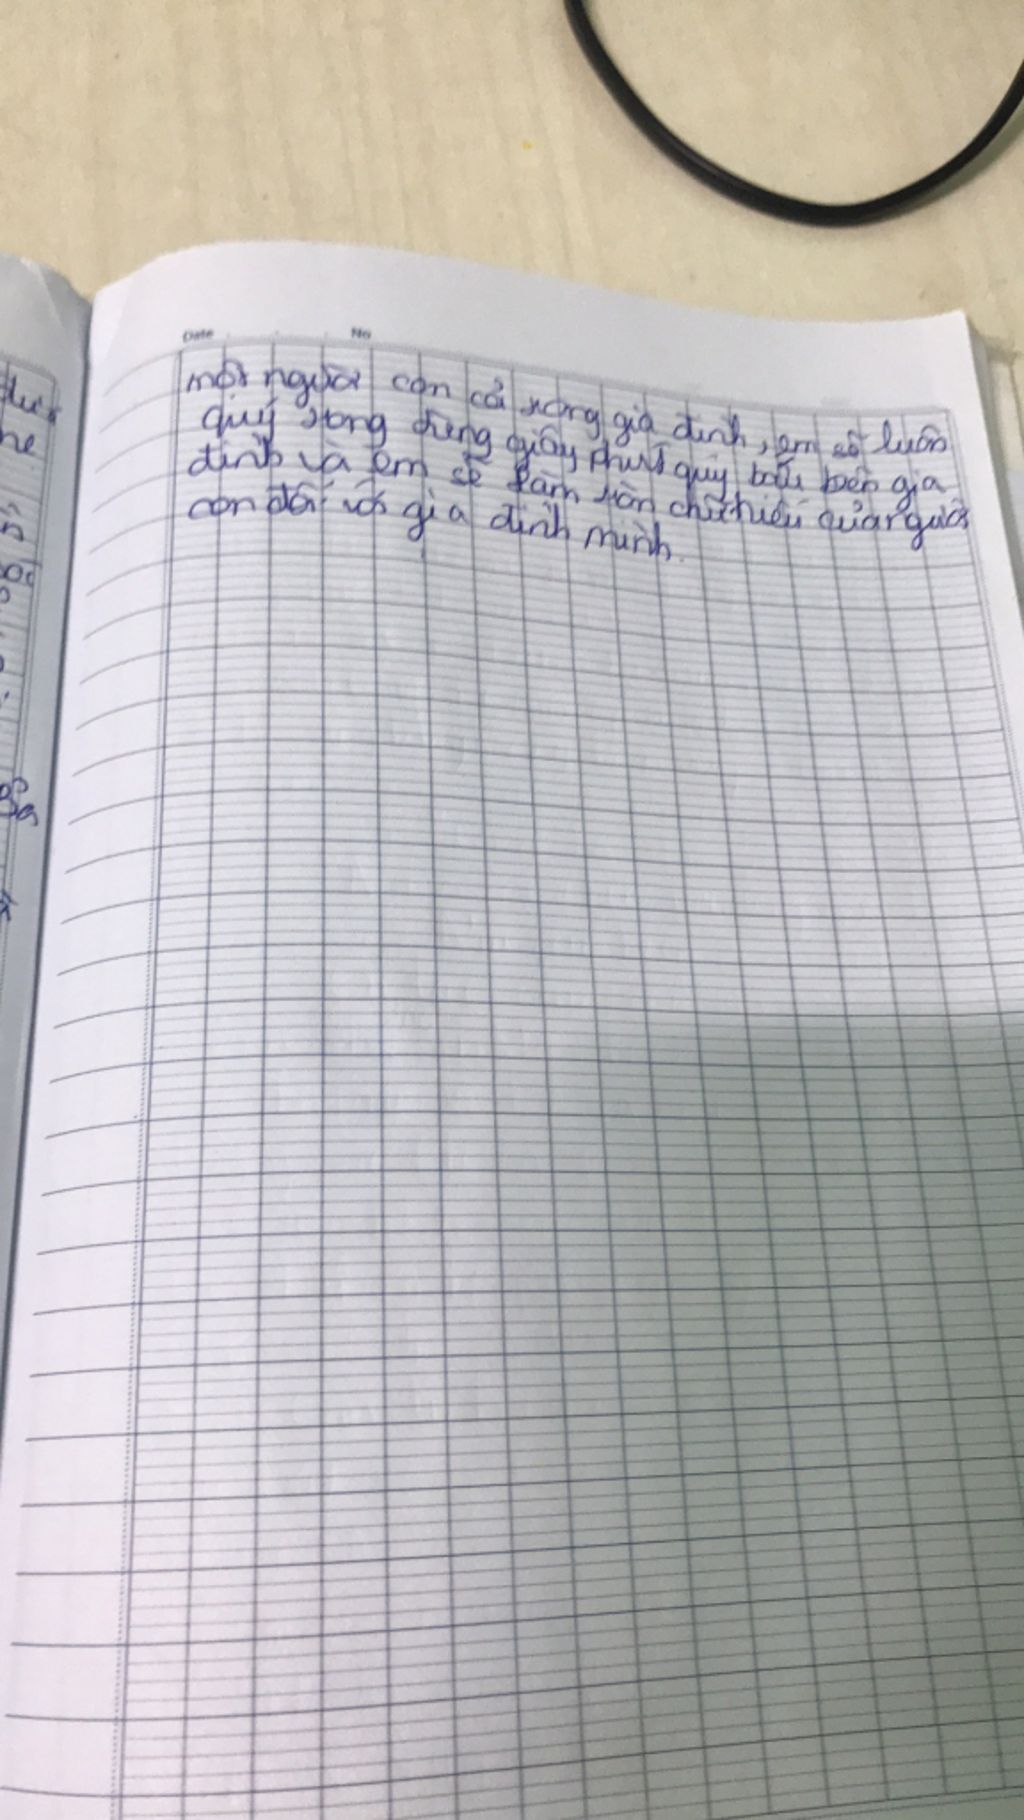 Date No
một người con cả trong gia đình, em sẽ luôn
quý trong từng giây phút quý báu bên gia
đình và em sẽ làm tròn chữ hiếu của người
con đối với gia đình mình.